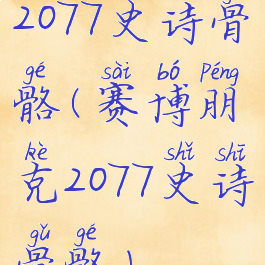 2077史诗骨
gé sài bó Péng
骼(赛博朋
kè shǐ shī
克2077史诗
gǔ gé
骨骼)